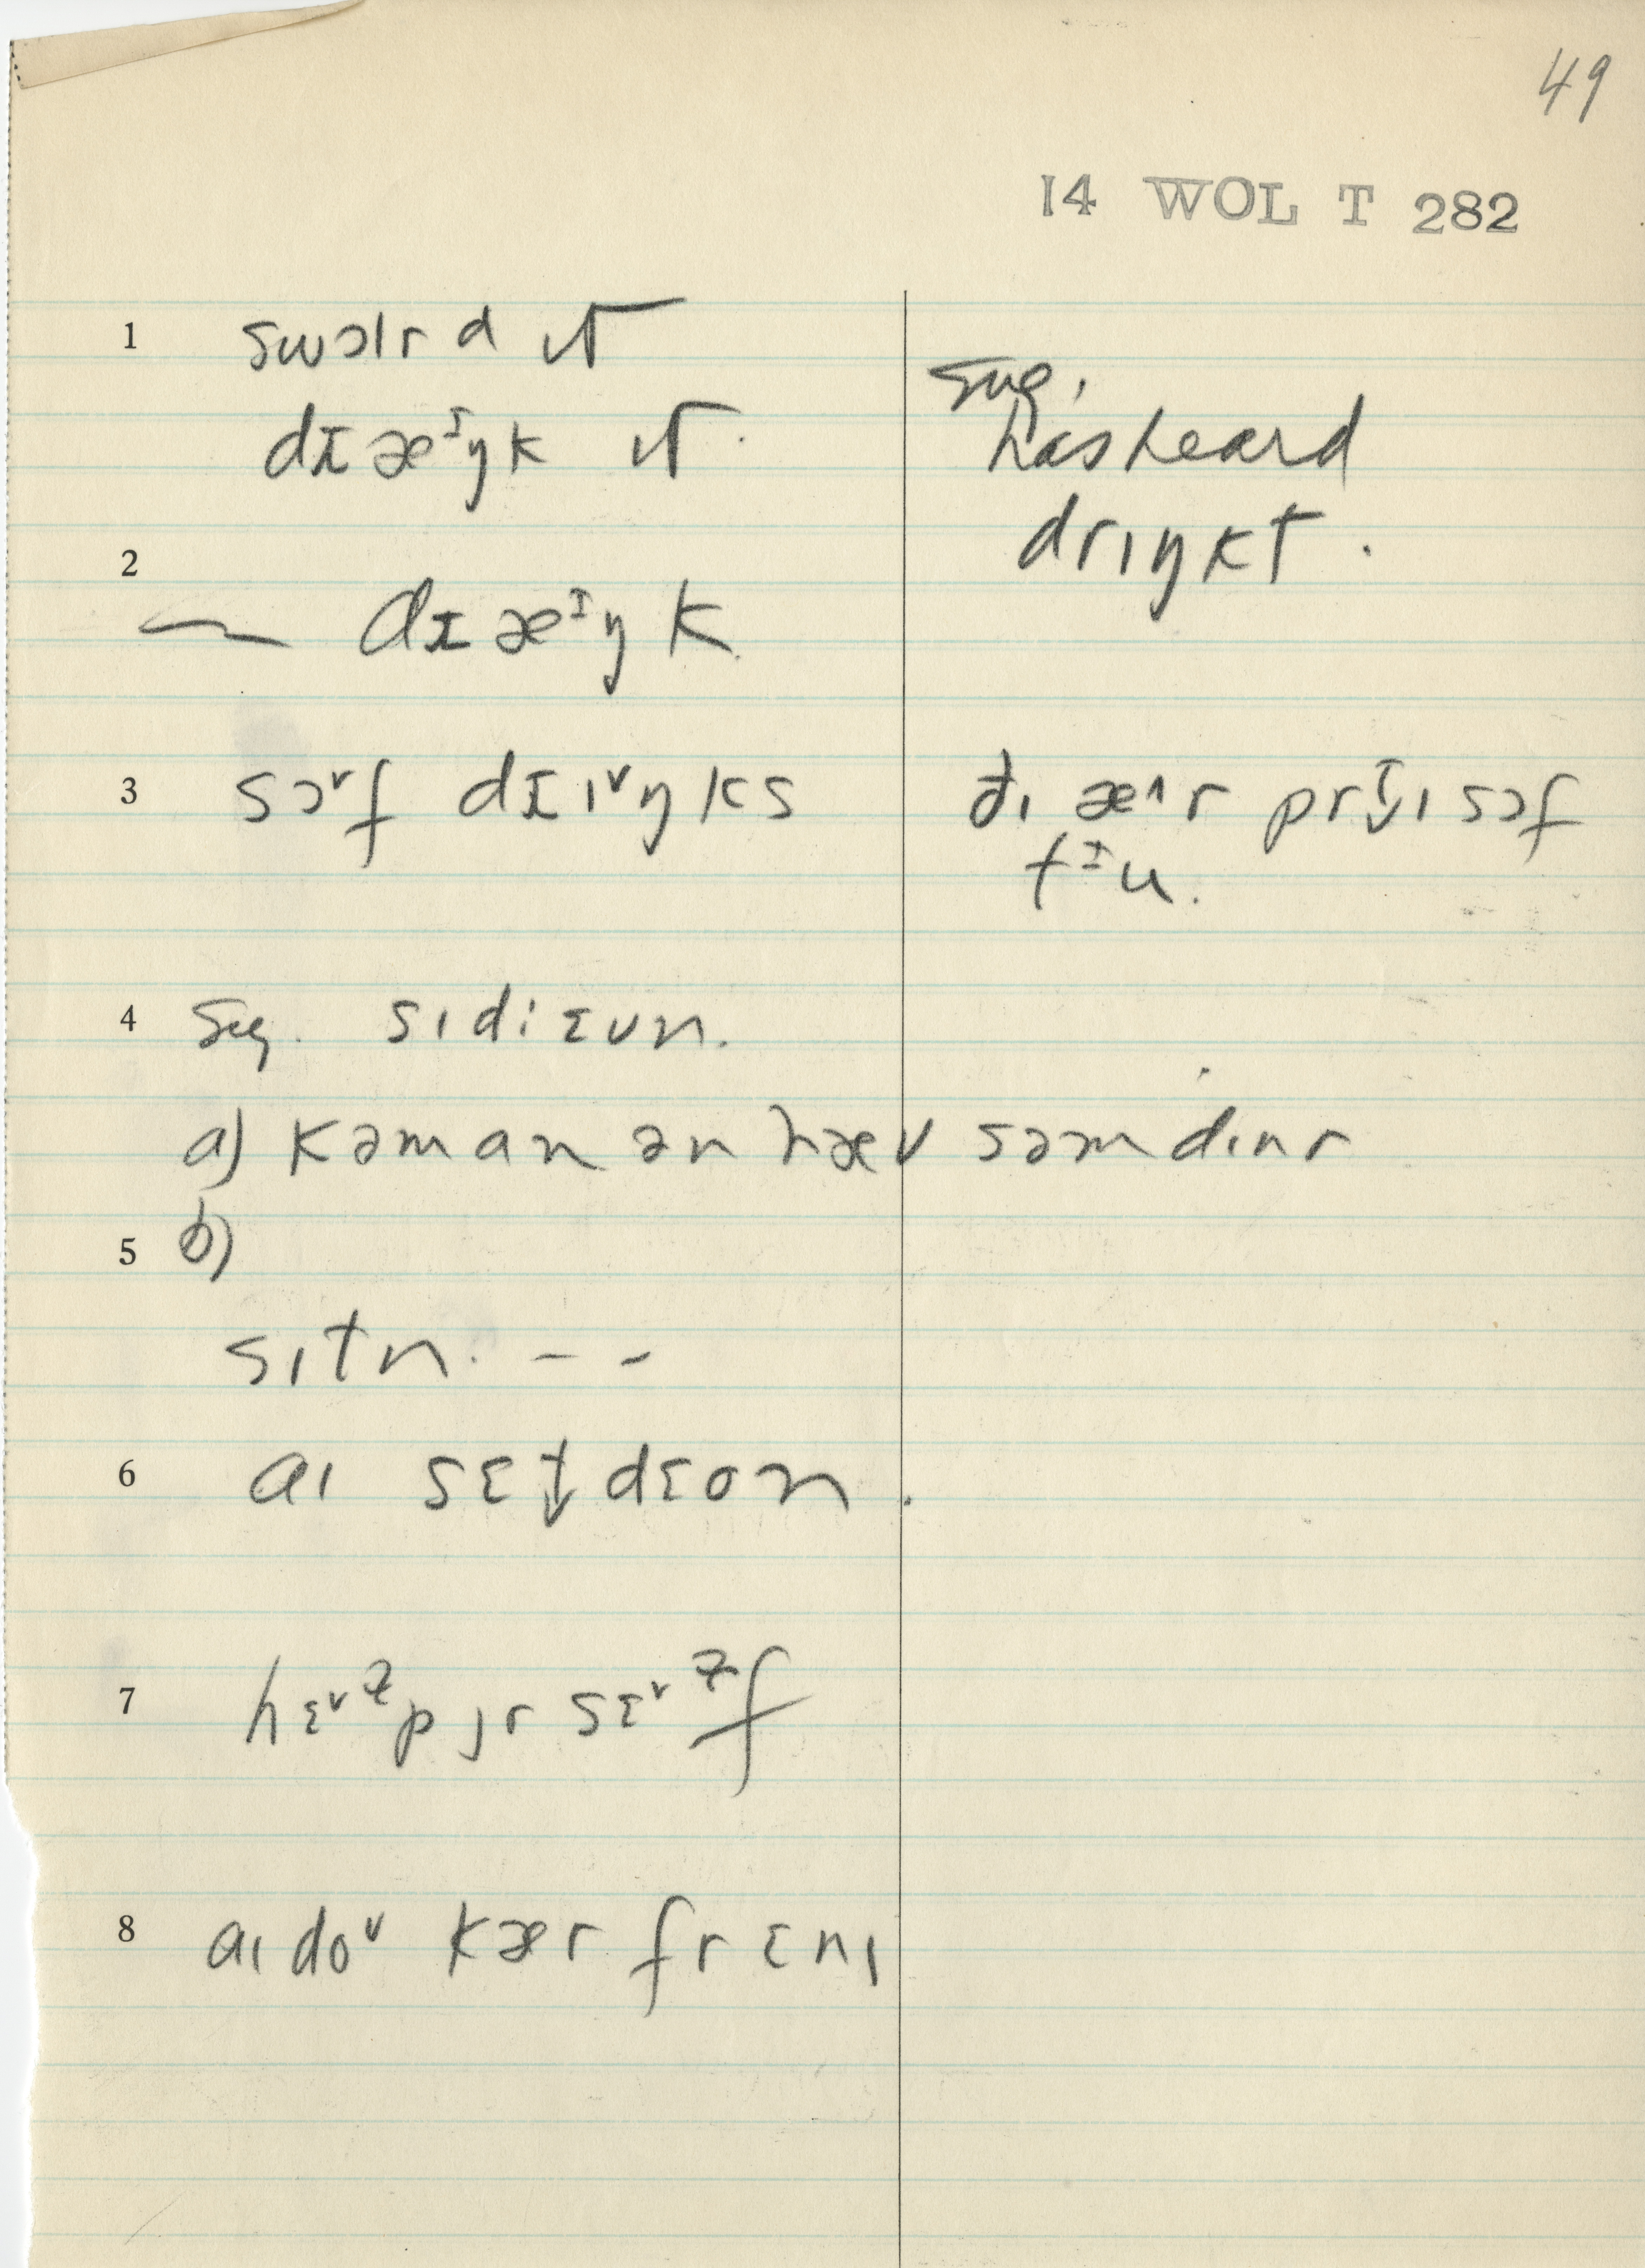 49
14 WOL T 282
1 swɔlrd ɪt
sug.
dɪæᶦŋk ɪt.
has heard
drɪŋkt.
2
— dɪæᶦŋk
3 sɔᵛf dɪɪᵛŋks
đɪ æ^r prɪtɪ sɔf
tᶦu.
4 sug. sɪdɪɛʊn.
a) kəmanən hæv səm dɪnr
5 b)
sɪtn. - -
6 aɪ sɛt̬dɛon.
7 hɛᵛɫp jr sɛᵛɫf
8 aɪdoᵛ kær fr ɛnɪ